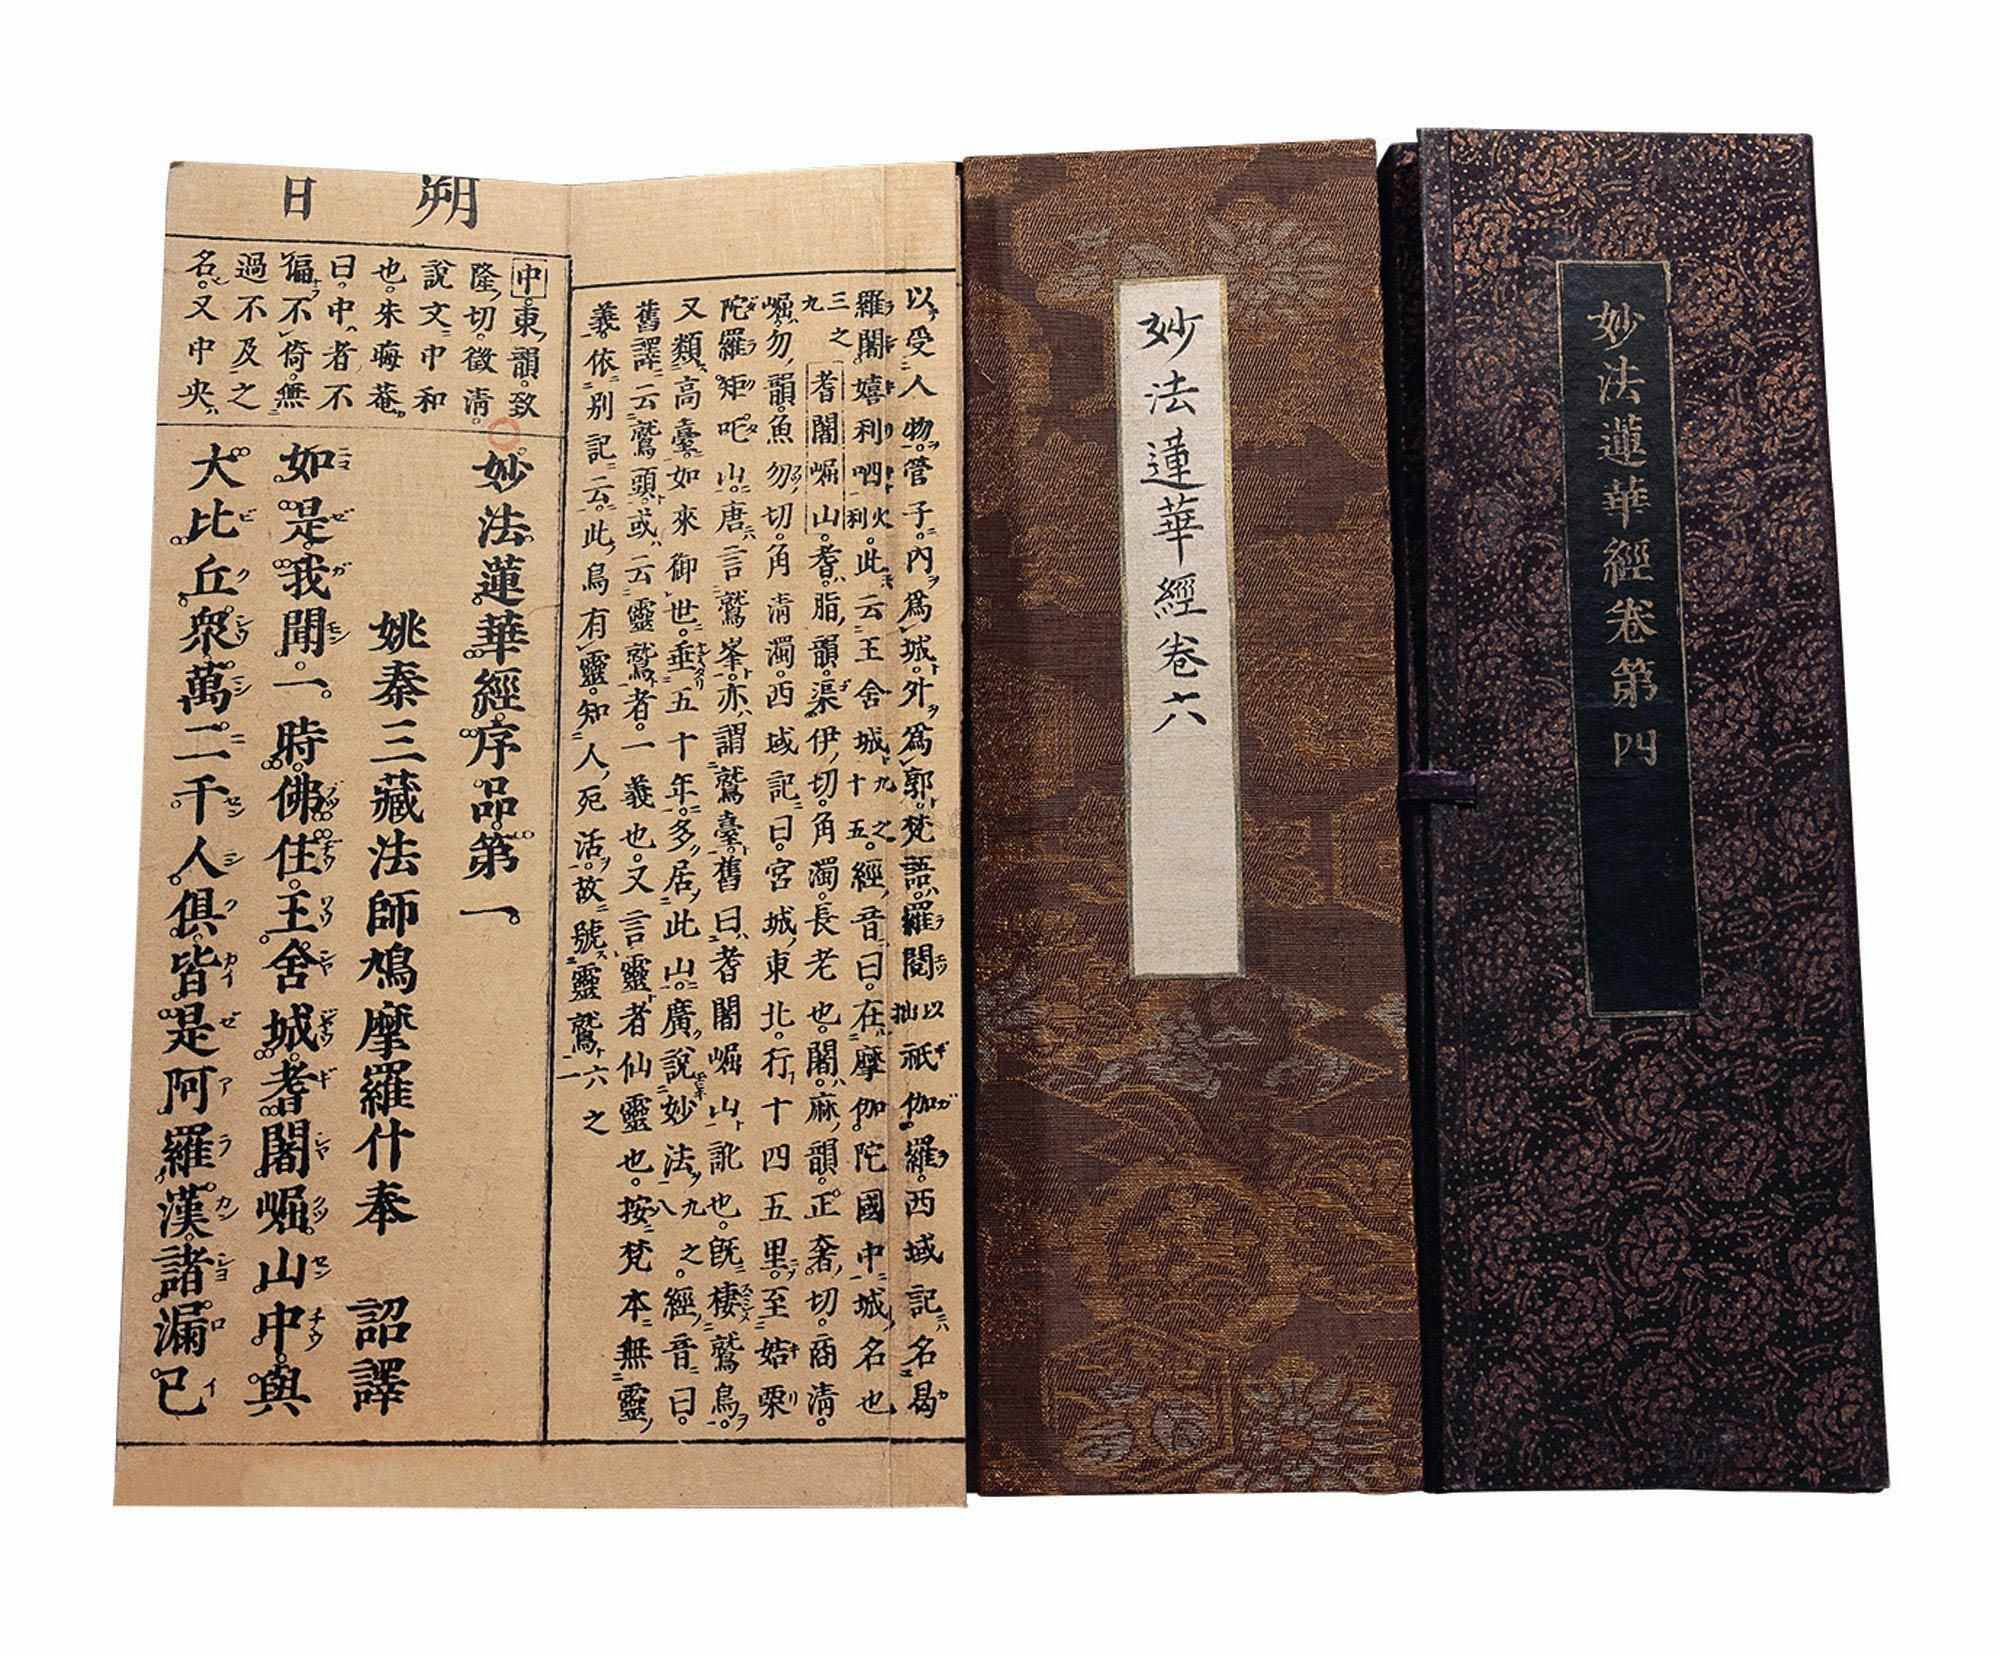 妙法蓮華經卷第四
妙法蓮華經卷六
以受人物。管子內爲城外爲郭。梵語羅閱祇伽羅西域記名曷
羅闍嬉利呬。此云王舍城九十五之經音曰在摩伽陀國中城名也
三之九 耆闍崛山。耆脂韻渠伊切角濁。長老也。闍麻韻正奢切商淸。
崛勿韻魚勿切角淸濁。西域記曰宮城東北。行十四五里。至姞栗
陀羅矩吒山。唐言鷲峯。亦謂鷲臺。舊曰耆闍崛山訛也。旣棲鷲鳥。
又類高臺。如來御世垂五十年。多居此山。廣說妙法八九之。經音曰。
舊譯云鷲頭。或云靈鷲者。一義也。又言靈者仙靈也。按梵本無靈
義。依別記云。此鳥有靈知人死活。故號靈鷲六之一
朔日
中東韻。致
隆切。徵淸。
說文中和
也。朱晦菴
曰。中者不
偏不倚無
過不及之
名。又中央
妙法蓮華經序品第一。
姚秦三藏法師鳩摩羅什奉 詔譯
如是我聞。一時佛住王舍城耆闍崛山中與
大比丘衆萬二千人俱皆是阿羅漢諸漏已